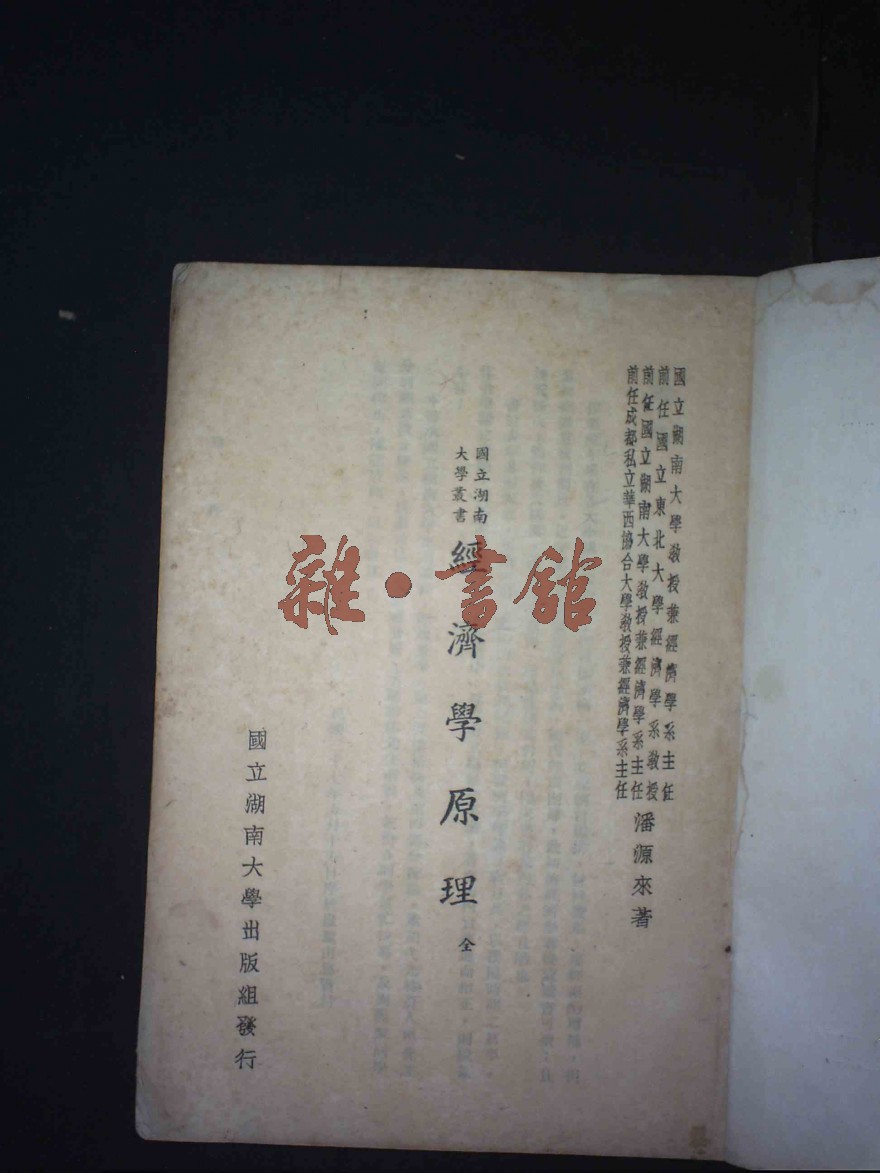 國立湖南大學教授兼經濟學系主任
前任國立東北大學經濟學系教授
前任國立湖南大學教授兼經濟學系主任
前任成都私立華西協合大學教授兼經濟學系主任
潘源來著
國立湖南
大學叢書
經濟學原理 全
國立湖南大學出版組發行
雜·書館